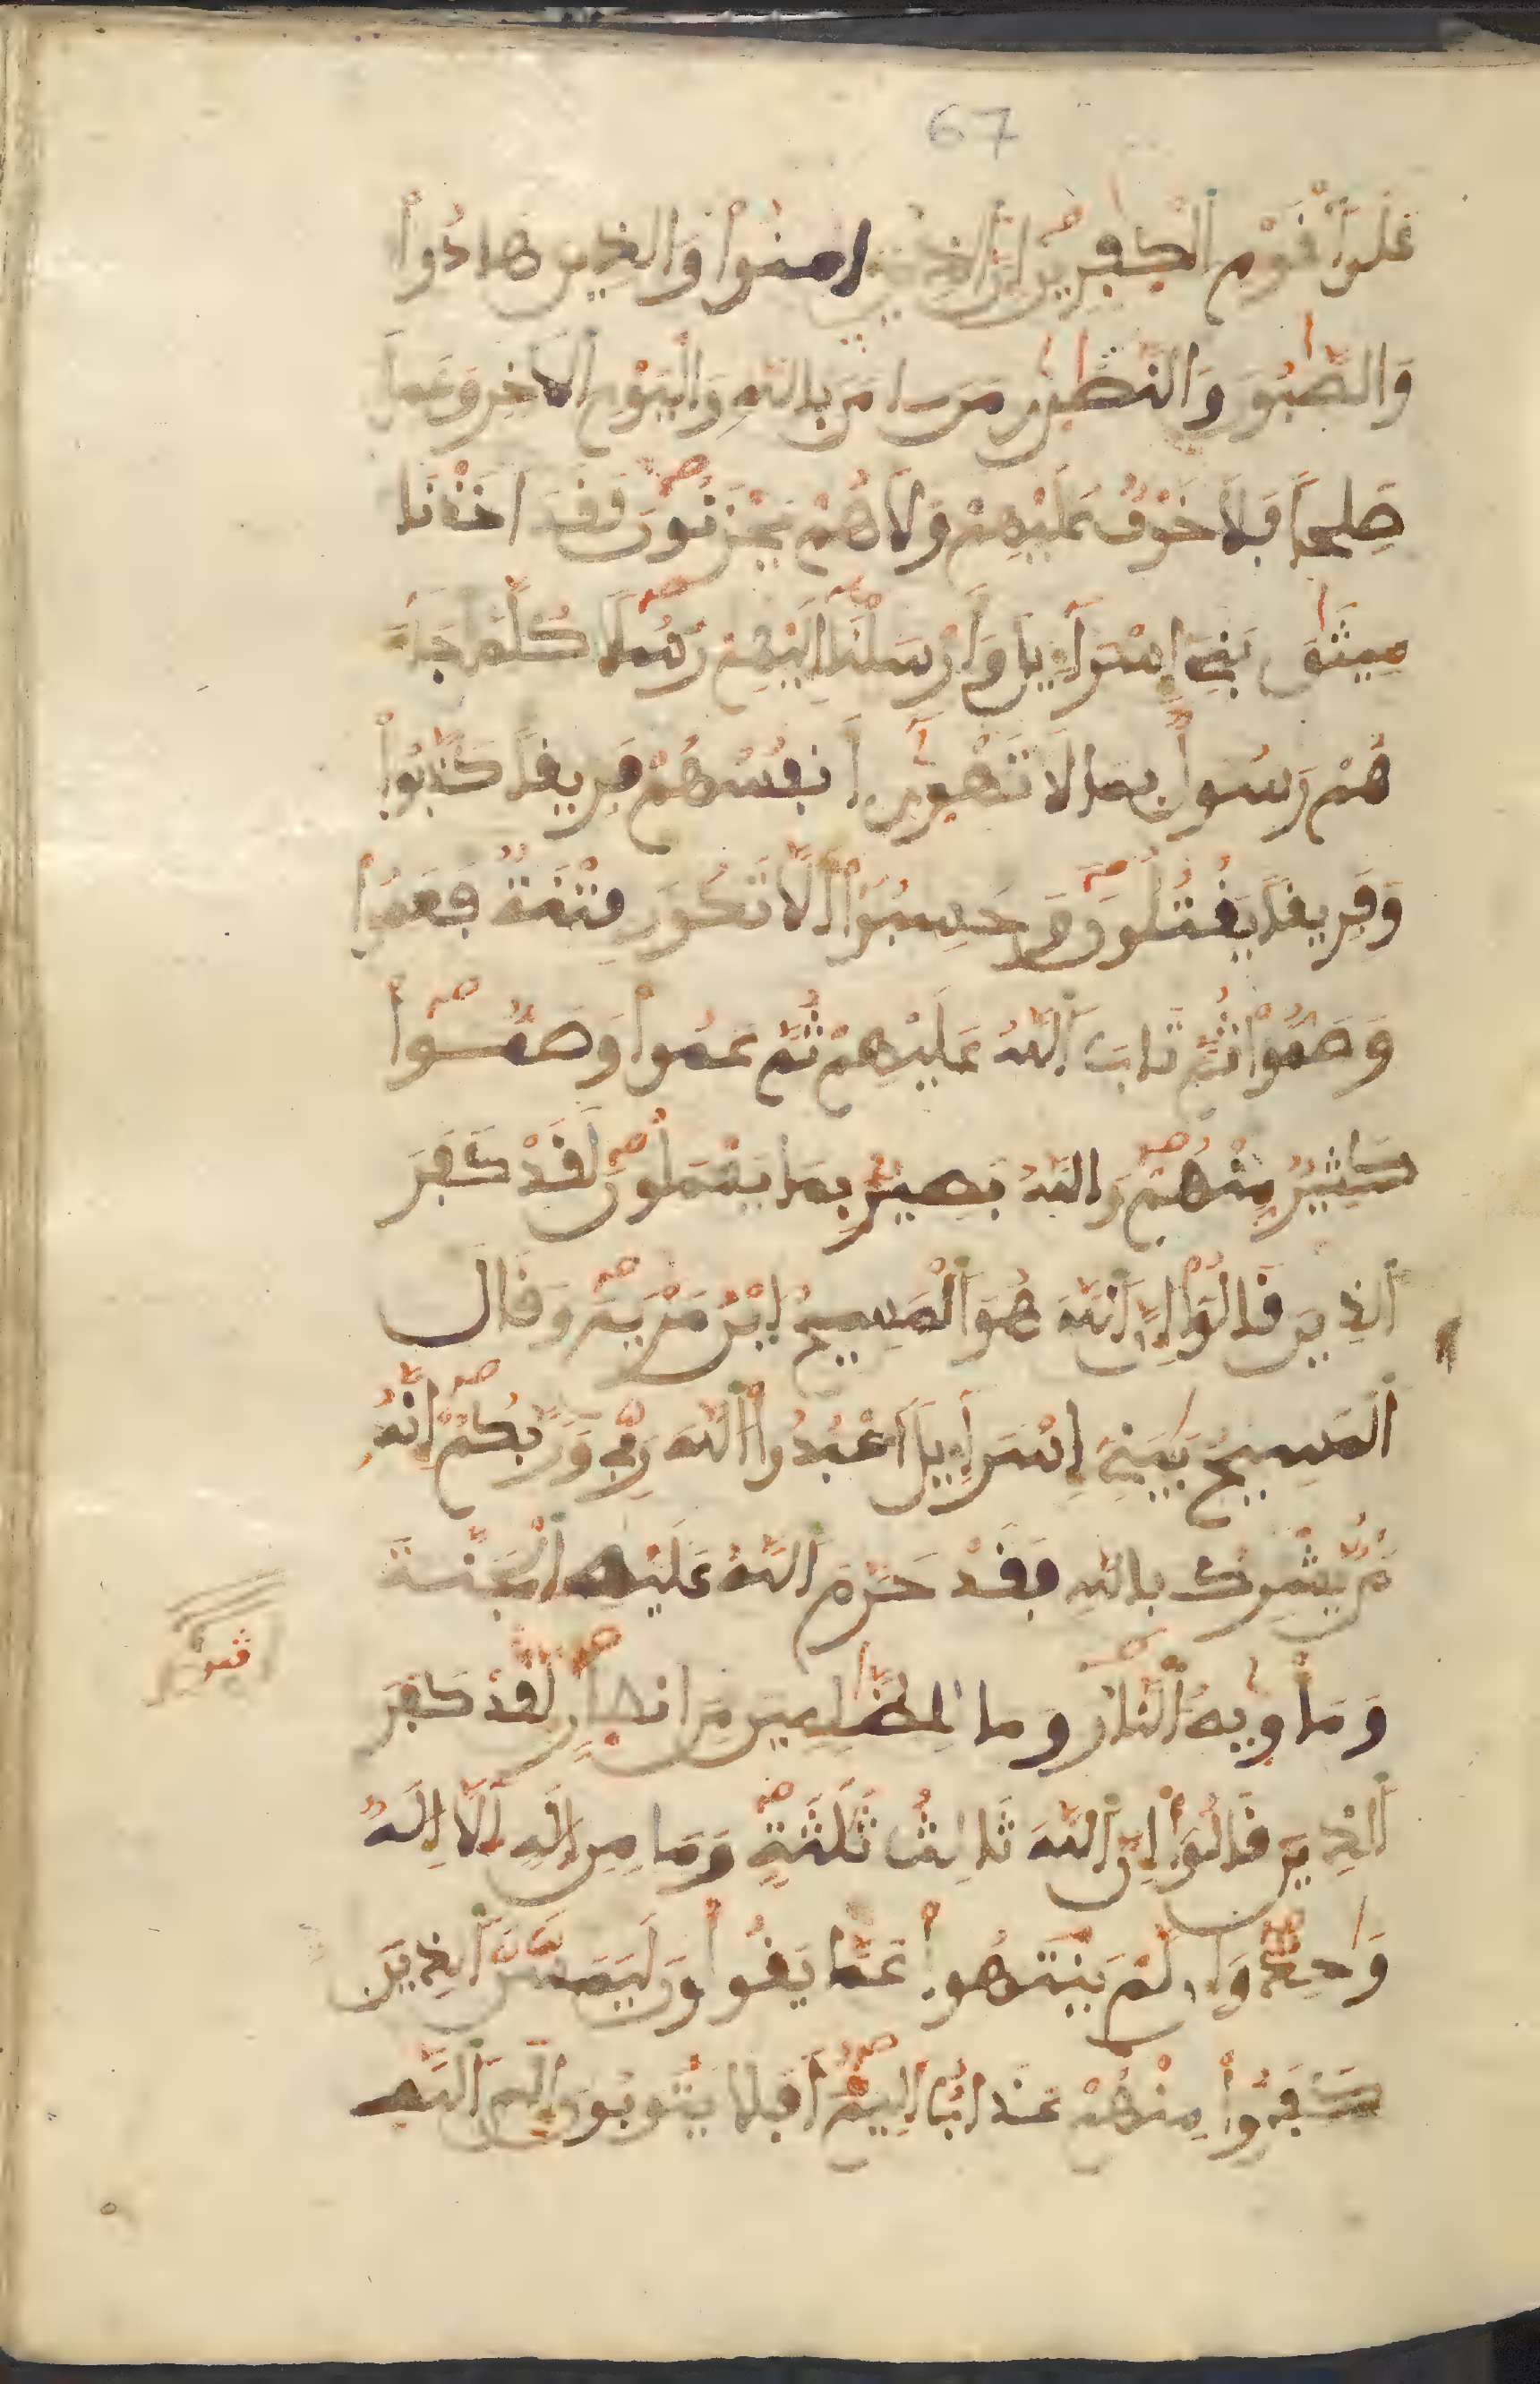 67
عَلَى اَ۬لْقَوْمِ اِ۬لْكٰفِرِينَ إِنَّ اَ۬لذِينَ ءامَنُواْ وَالذِينَ هَادُواْ
وَالصَّٰبُونَ وَالنَّصَٰرىٰ مَنَ ـامَنَ بِاللَّهِ وَالْيَوْمِ اِ۬لَاخِرِ وَعَمِلَ
صَٰلِحاً فَلَا خَوْفٌ عَلَيْهِمْ وَلَا هُمْ يَحْزَنُونَ لَقَدَ اَخَذْنَا
مِيثَٰقَ بَنِےٓ إِسْرَآءِيلَ وَأَرْسَلْنَآ إِلَيْهِمْ رُسُلاً كُلَّمَا جَآءَ
هُمْ رَسُولٌ بِمَا لَا تَهْوىٰٓ أَنفُسُهُمْ فَرِيقاً كَذَّبُواْ
وَفَرِيقاً يَقْتُلُونَ وَحَسِبُوٓاْ أَلَّا تَكُونَ فِتْنَةٌ فَعَمُواْ
وَصَمُّواْ ثُمَّ تَابَ اَ۬للَّهُ عَلَيْهِمْ ثُمَّ عَمُواْ وَصَمُّواْ
كَثِيرٌ مِّنْهُمْ وَاللَّهُ بَصِيرٌ بِمَا يَعْمَلُونَ لَقَدْ كَفَرَ
اَ۬لذِينَ قَالُوٓاْ إِنَّ اَ۬للَّهَ هُوَ اَ۬لْمَسِيحُ اُ۪بْنُ مَرْيَمَ وَقَالَ
اَ۬لْمَسِيحُ يَٰبَنِےٓ إِسْرَآءِيلَ اَ۟عْبُدُواْ اُ۬للَّهَ رَبِّے وَرَبَّكُمْ إِنَّهُ
مَنْ يُّشْرِكْ بِاللَّهِ فَقَدْ حَرَّمَ اَ۬للَّهُ عَلَيْهِ اِ۬لْجَنَّةَ
وَمَأْوٜيٰهُ اُ۬لنَّارُ وَمَا لِلظَّٰلِمِينَ مِنَ اَنصٰارٍ لَّقَدْ كَفَرَ
اَ۬لذِينَ قَالُوٓاْ إِنَّ اَ۬للَّهَ ثَالِثُ ثَلَٰثَةٍ وَمَا مِنِ اِلَٰهٍ اِلَّآ إِلَٰهٌ
وَٰحِدٌ وَإِن لَّمْ يَنتَهُواْ عَمَّا يَقُولُونَ لَيَمَسَّنَّ اَ۬لذِينَ
كَفَرُواْ مِنْهُمْ عَذَابٌ اَلِيمٌ اَفَلَا يَتُوبُونَ إِلَى اَ۬للَّهِ